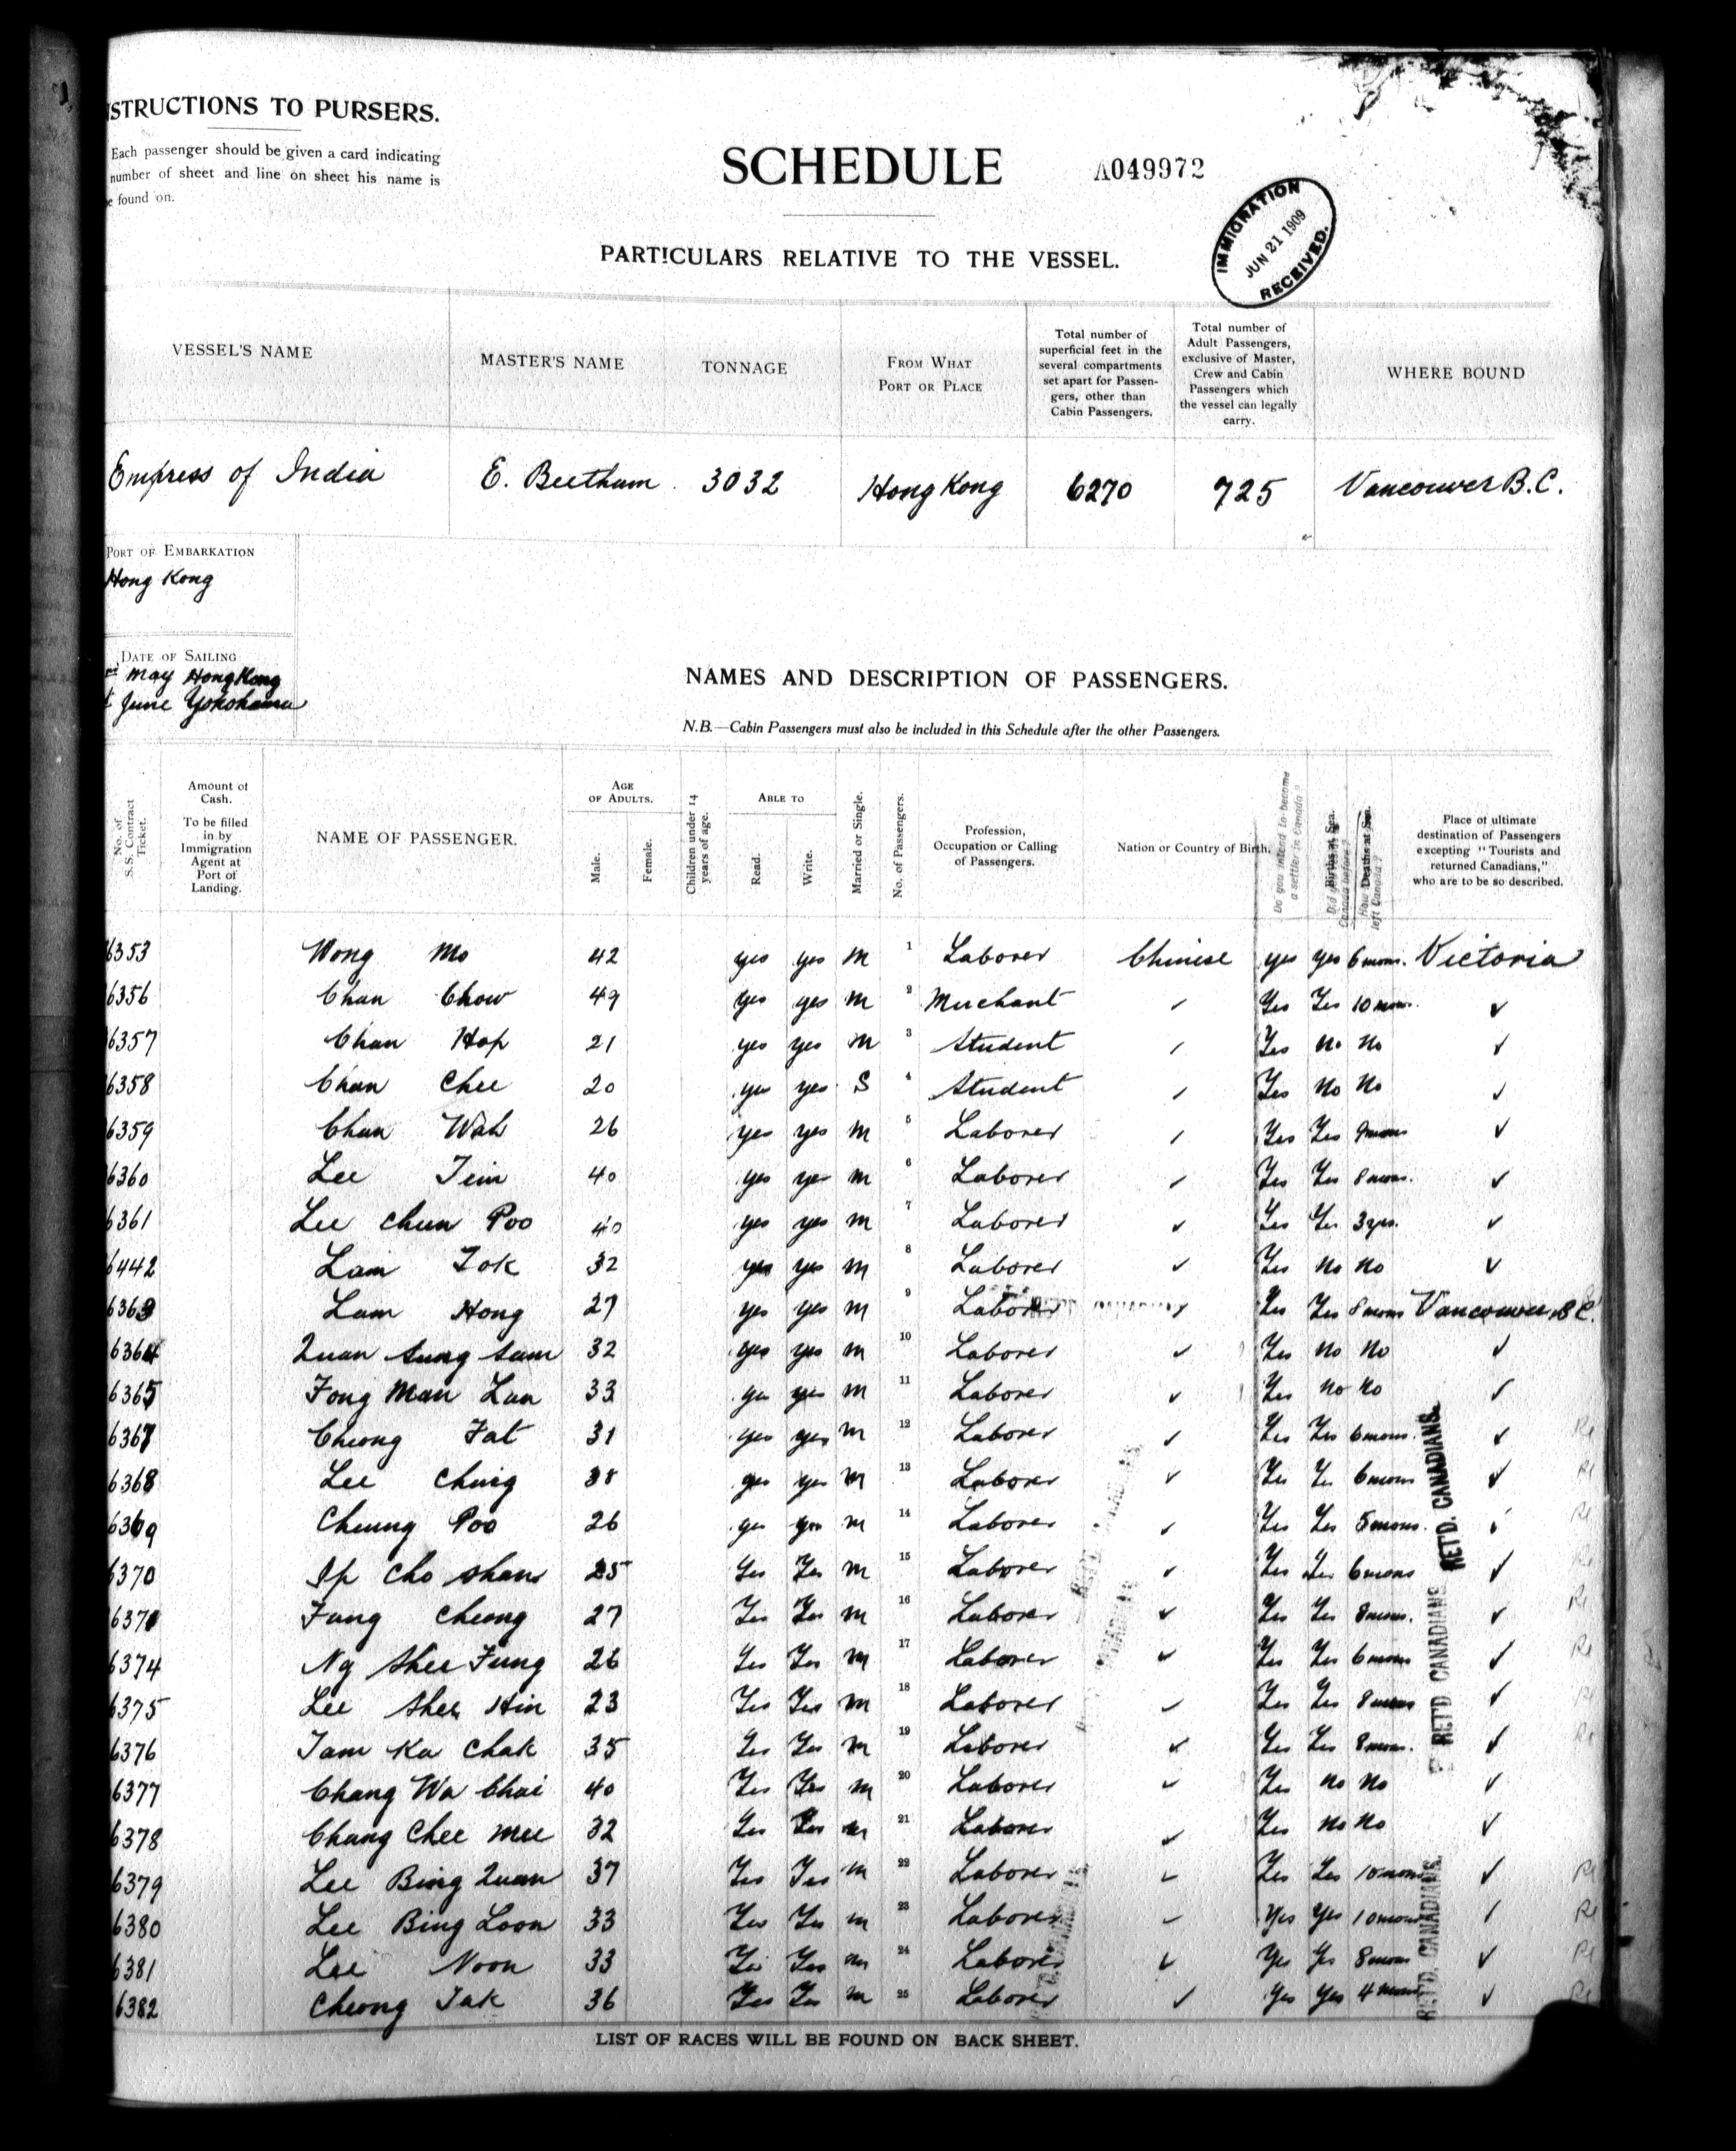 NSTRUCTIONS TO PURSERS.
Each passenger should be given a card indicating
number of sheet and line on sheet his name is
found on.
SCHEDULE
A049972
IMMIGRATION
JUN 21 1909
RECEIVED.
PARTICULARS RELATIVE TO THE VESSEL.
VESSEL'S NAME
MASTER'S NAME
TONNAGE
FROM WHAT PORT OR PLACE
Total number of superficial feet in the several compartments set apart for Passengers, other than Cabin Passengers.
Total number of Adult Passengers, exclusive of Master, Crew and Cabin Passengers which the vessel can legally carry.
WHERE BOUND
Empress of India E. Beetham 3032 Hong Kong 6270 725 Vancouver B.C.
PORT OF EMBARKATION
Hong Kong
DATE OF SAILING
May Hong Kong
June Yokohama
NAMES AND DESCRIPTION OF PASSENGERS.
N.B.—Cabin Passengers must also be included in this Schedule after the other Passengers.
No. of S.S. Contract Ticket.
Amount of Cash. To be filled in by Immigration Agent at Port of Landing.
NAME OF PASSENGER.
AGE OF ADULTS.
Male.
Female.
Children under 14 years of age.
ABLE TO
Read.
Write.
Married or Single.
No. of Passengers.
Profession, Occupation or Calling of Passengers.
Nation or Country of Birth.
Do you intend to become a settler in Canada?
Births at Sea.
Deaths at Sea.
Place of ultimate destination of Passengers excepting "Tourists and returned Canadians," who are to be so described.
6353 Wong Mo 42 yes yes M 1 Laborer Chinese yes yes 6 mons. Victoria
6356 Chan Chow 49 yes yes M 2 Merchant Yes Yes 10 mons. ✓
6357 Chan Hop 21 yes yes M 3 Student Yes No No ✓
6358 Chan Chee 20 yes yes S 4 Student Yes No No ✓
6359 Chan Wah 26 yes yes M 5 Laborer Yes Yes 9 mons ✓
6360 Lee Tim 40 yes yes M 6 Laborer Yes Yes 8 mons. ✓
6361 Lee Chun Poo 40 yes yes M 7 Laborer ✓ Yes Yes 3 yrs. ✓
6442 Lam Tok 32 yes yes M 8 Laborer ✓ Yes No No ✓
6363 Lam Hong 27 yes yes M 9 Laborer Yes Yes 8 mons Vancouver, B.C.
6364 Quan Sung Sam 32 yes yes M 10 Laborer ✓ Yes No No ✓
6365 Fong Man Lan 33 yes yes M 11 Laborer ✓ Yes No No ✓
6367 Cheong Fat 31 yes yes M 12 Laborer ✓ Yes Yes 6 mons. ✓
6368 Lee Ching 38 yes yes M 13 Laborer ✓ Yes Yes 6 mons ✓
6369 Cheung Poo 26 yes yes M 14 Laborer ✓ Yes Yes 5 mons. ✓
6370 Ip Cho Shan 25 Yes Yes M 15 Laborer ✓ Yes Yes 6 mons ✓
Fung Cheong 27 Yes Yes M 16 Laborer ✓ Yes Yes 8 mons. ✓
6374 Ng Shee Fung 26 Yes Yes M 17 Laborer ✓ Yes Yes 6 mons ✓
6375 Lee Shee Hin 23 Yes Yes M 18 Laborer ✓ Yes Yes 8 mons ✓
6376 Tam Ka Chak 35 Yes Yes M 19 Laborer ✓ Yes Yes 8 mons. ✓
6377 Chang Wa Chai 40 Yes Yes M 20 Laborer ✓ Yes No No ✓
6378 Chung Chee Mee 32 Yes Yes M 21 Laborer ✓ Yes No No ✓
6379 Lee Bing Quan 37 Yes Yes M 22 Laborer ✓ Yes Yes 10 mons ✓
6380 Lee Bing Loon 33 Yes Yes M 23 Laborer ✓ Yes Yes 10 mons
6381 Lee Noon 33 Yes Yes M 24 Laborer ✓ Yes Yes 8 mons ✓
6382 Cheong Tak 36 Yes Yes M 25 Laborer ✓ Yes Yes 4 mons ✓
RET'D. CANADIANS.
RET'D CANADIANS
RET'D. CANADIANS.
LIST OF RACES WILL BE FOUND ON BACK SHEET.